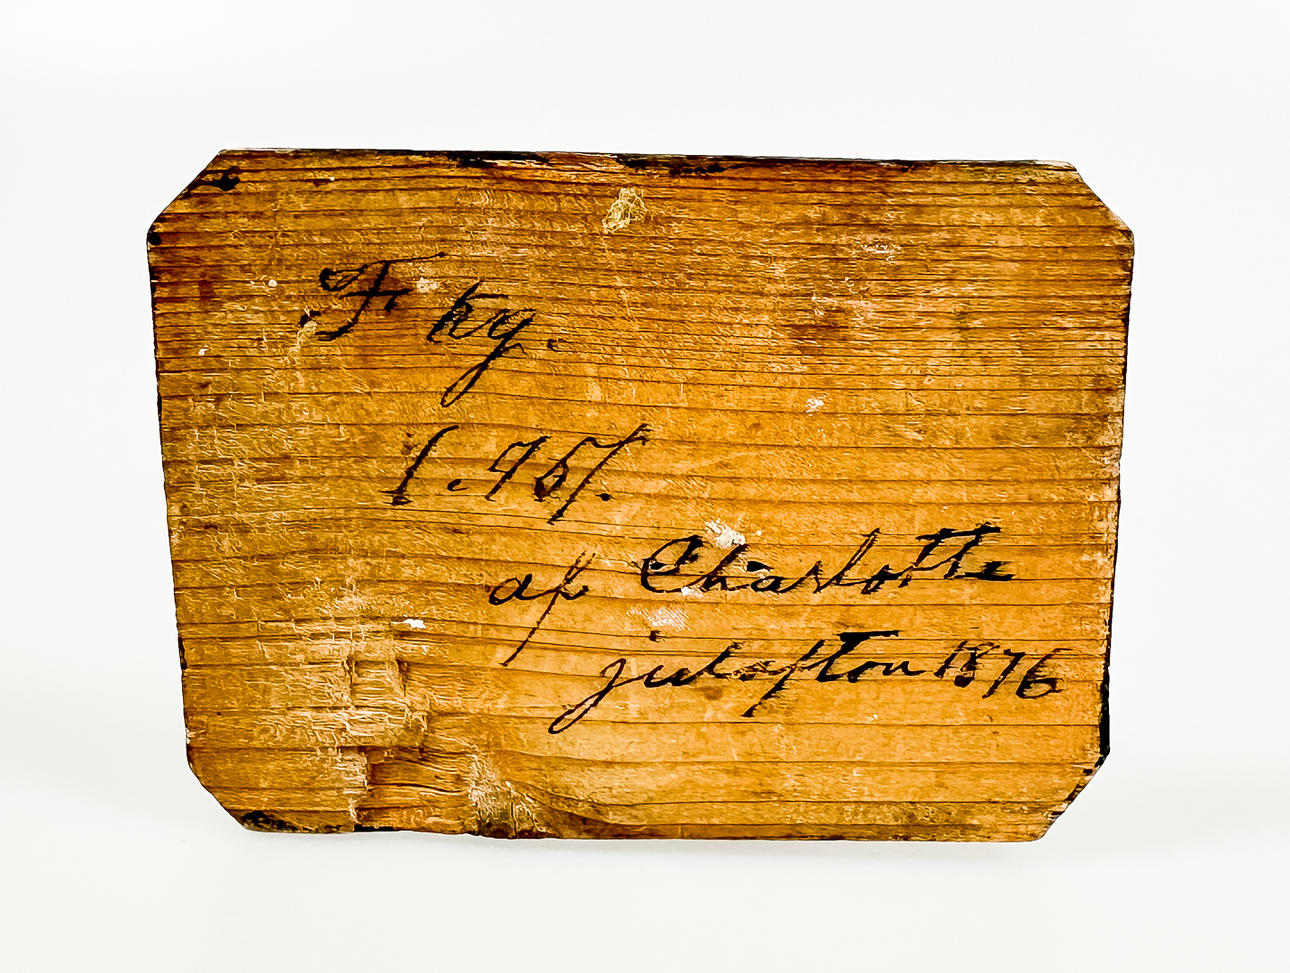 F ky.
1.75/.
af Charlotte
julafton 1876